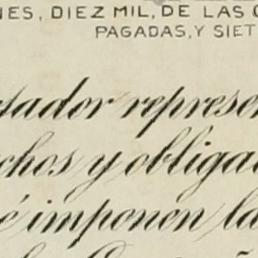 NES, DIEZ MIL, DE LAS
PAGADAS, Y SIET
tador represen
chos y obligac
é imponen la